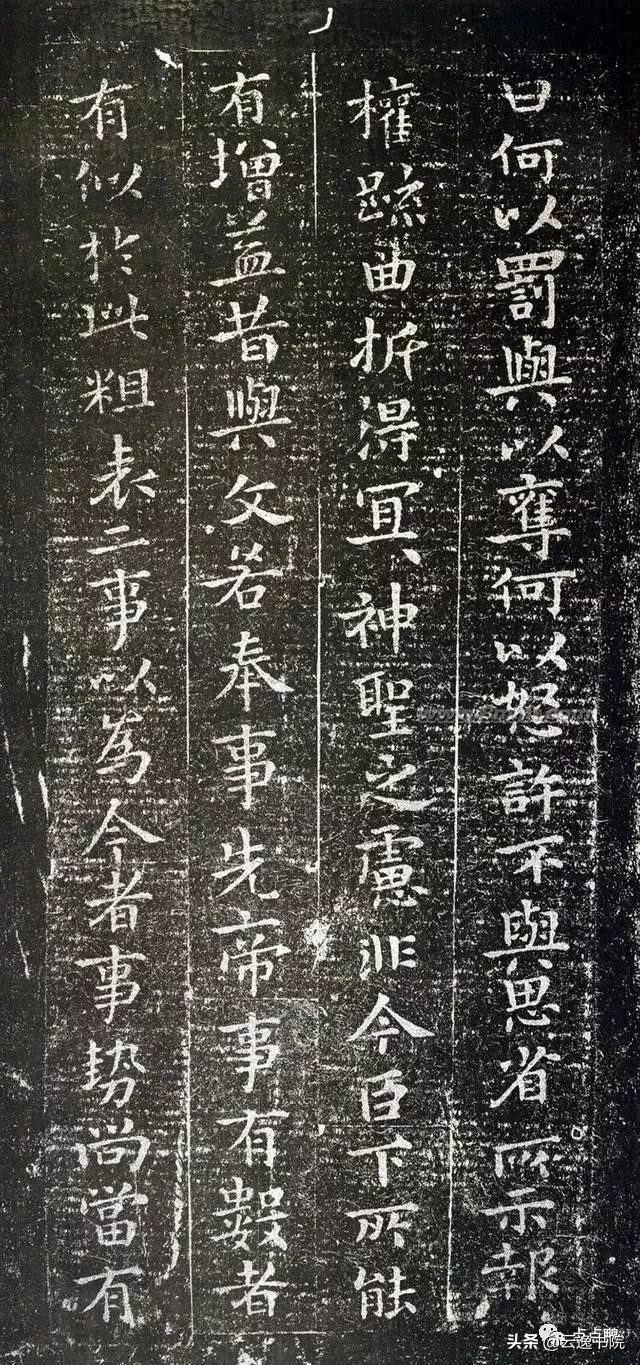 曰何以罰與以奪何以怒許不與思省所示報
權疏曲折得宜神聖之慮非今臣下所能
有增益昔與文若奉事先帝事有數者
有似於此粗表二事以為今者事勢尚當有
头条@云逸书院